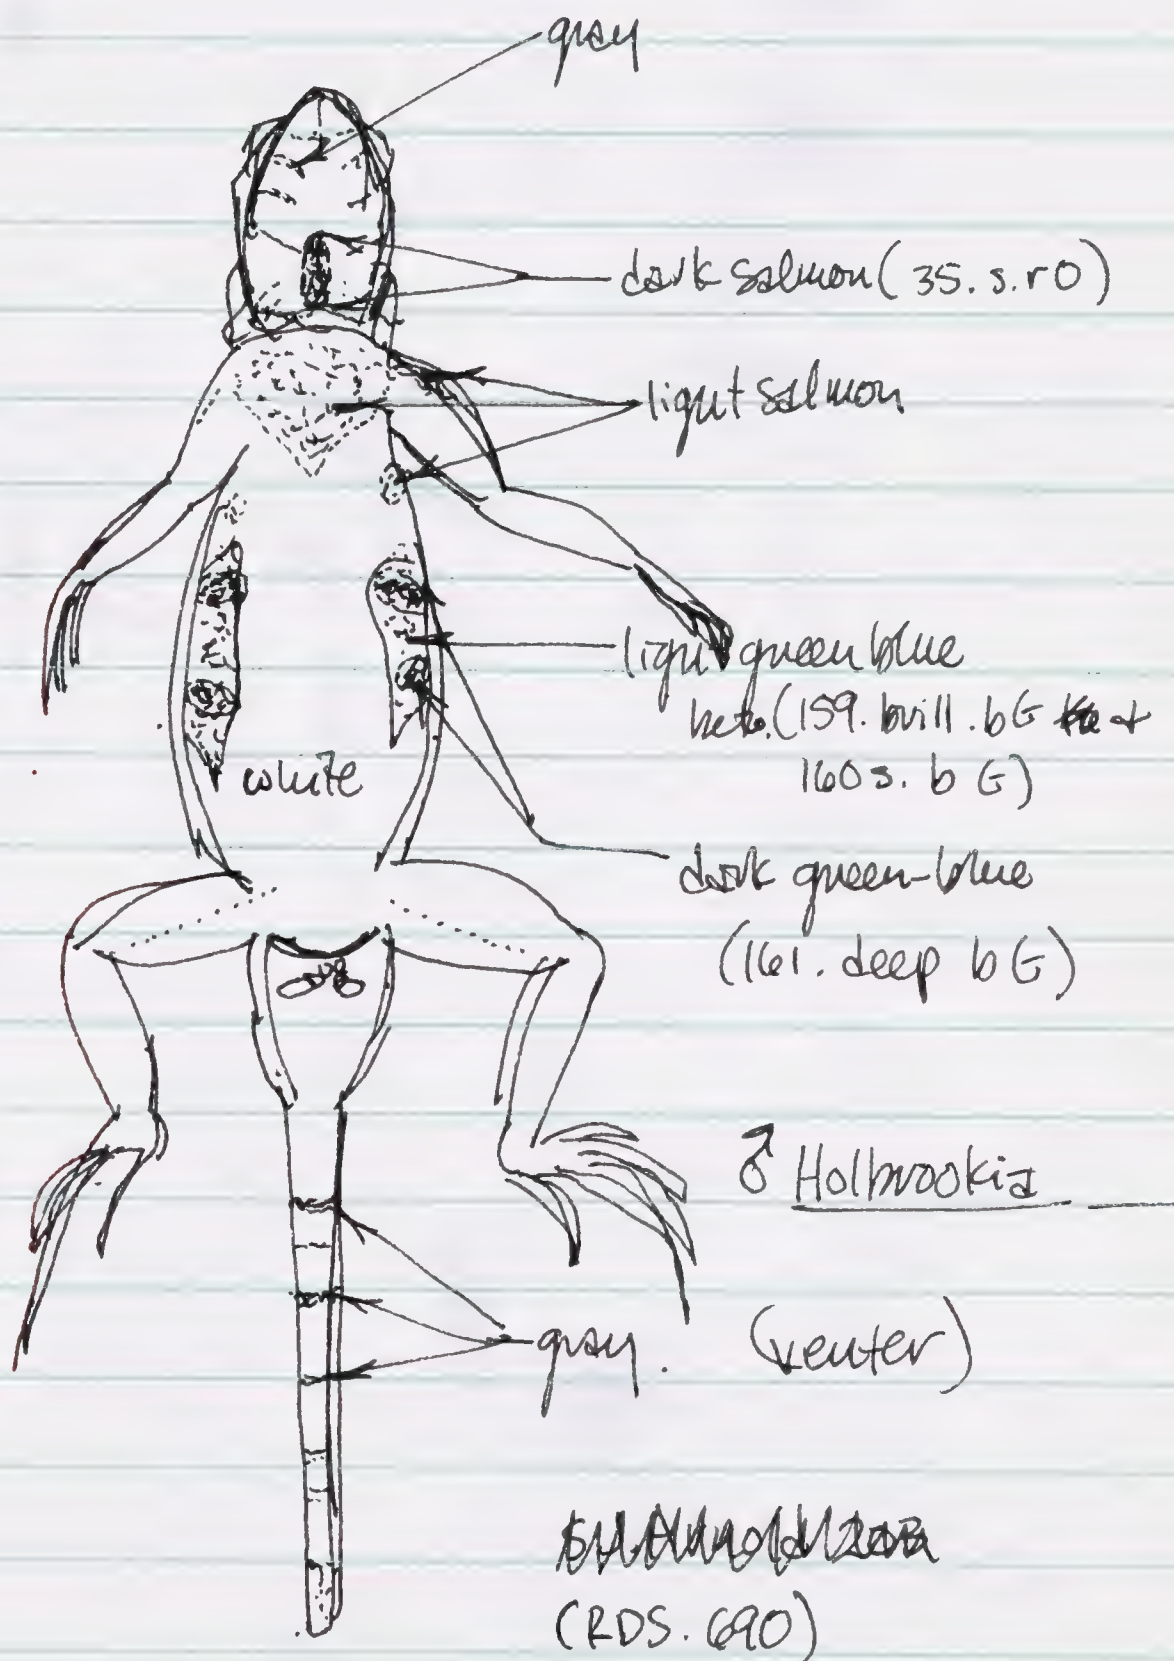 gray
dark salmon (35. s. r O)
light salmon
light green blue
(159. brill. bG
160 s. b G)
white
dark green-blue
(161. deep b G)
♂ Holbrookia
gray. (venter)
(RDS. 690)